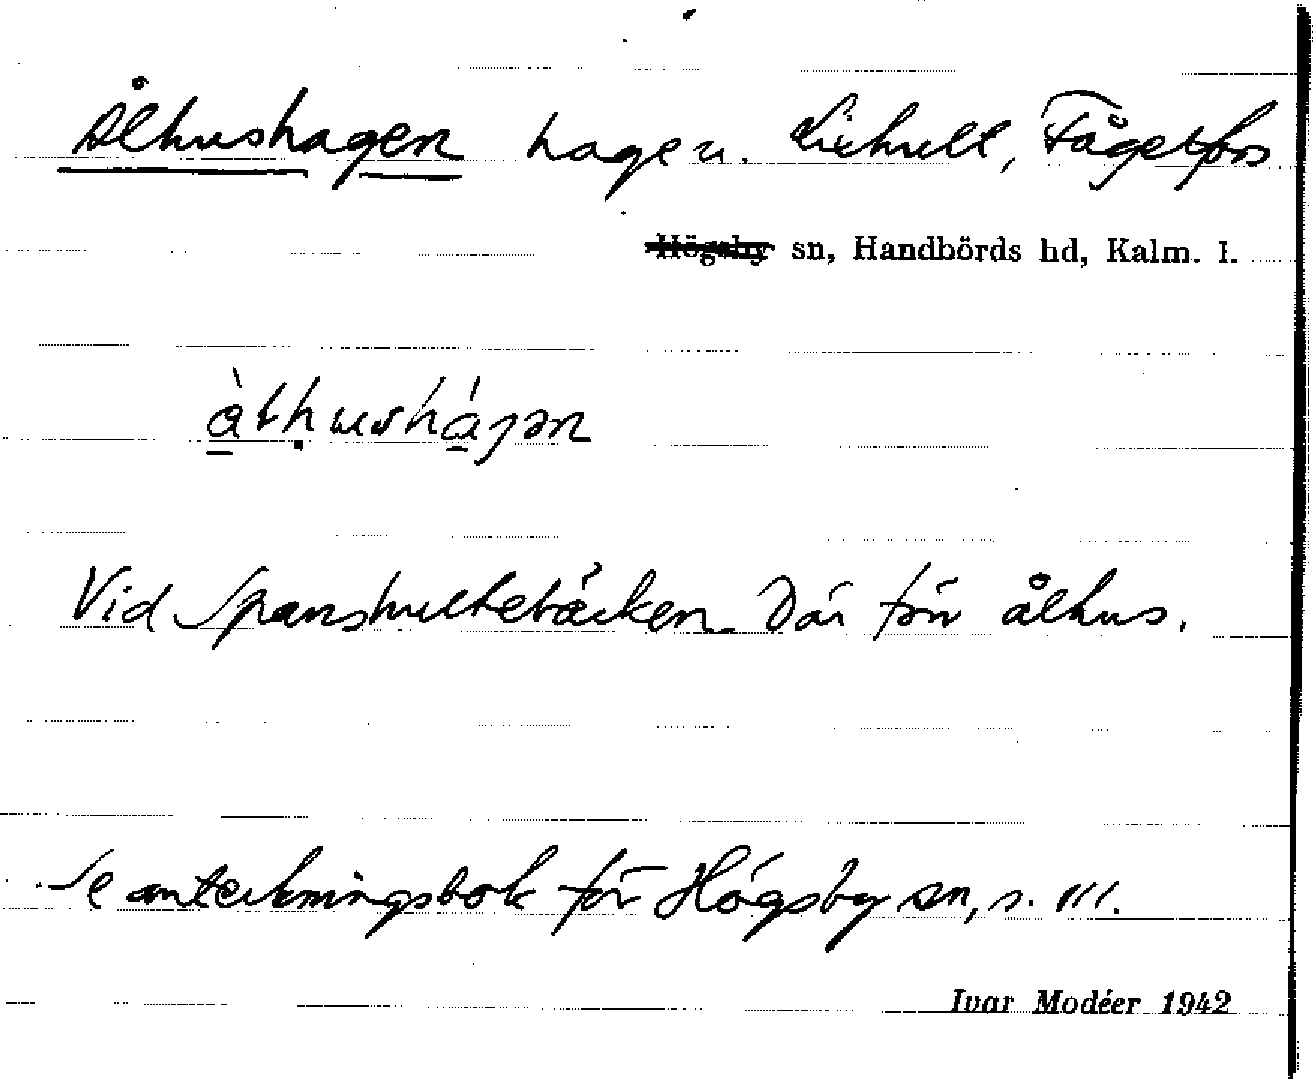 Ålhushagen hage u. Lixhult, Fågelfors
Högsby sn, Handbörds hd, Kalm. l.
Vid Spanshultebäcken Där förr ålhus.
Se anteckningsbok för Högsby sn, s. 111.
Ivar Modéer 1942